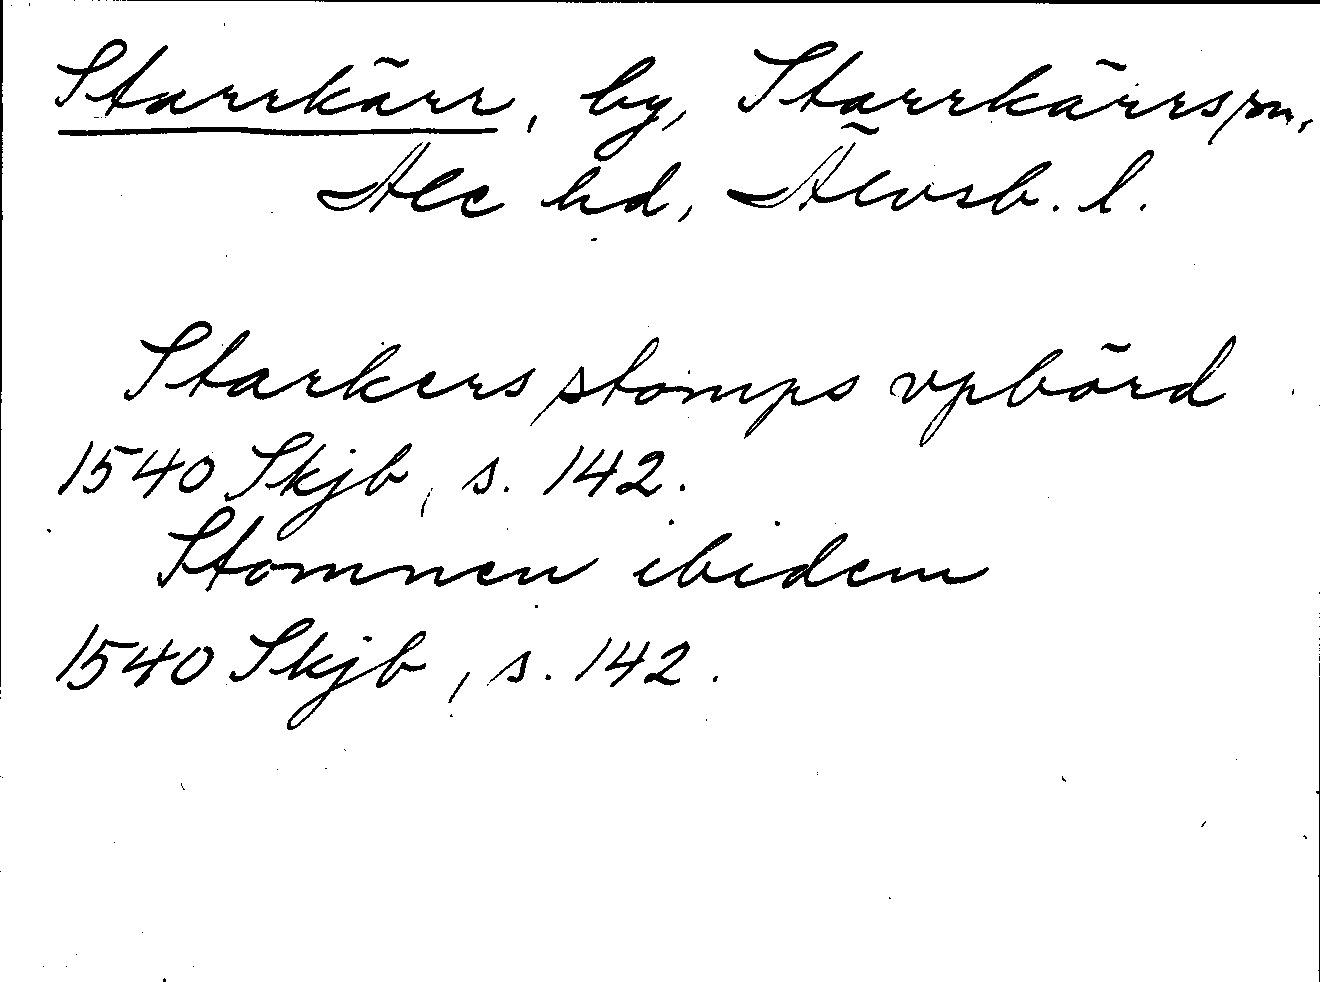 Starrkärr, by, Starrkärrs sn,
Ale hd, Älvsb. l.
Starkers stomps vpbörd
1540 Skjb, s. 142.
Stomnen ibidem
1540 Skjb, s. 142.